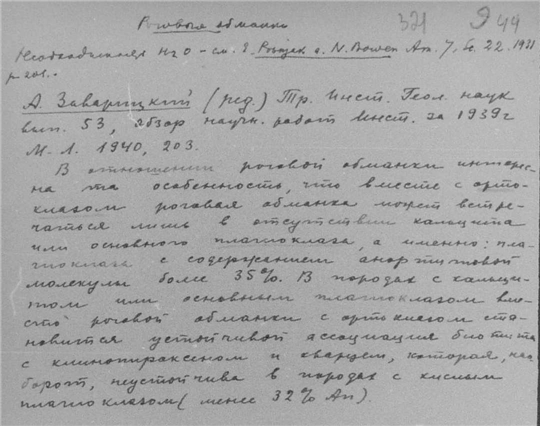 Роговые обманки
321 944
Необходимая H2O - см. E. Posnjak a. N. Bowen Am. J. Sc. 22. 1931
p 203.
А. Заварицкий (ред) Тр. Инст. Геол. наук
вып. 53, обзор научн. работ Инст. за 1939г
М. Л. 1940, 203.
В отношении роговой обманки интерес-
на та особенность, что вместе с орто-
клазом роговая обманка может встре-
чаться лишь в отсутствии кальцита
или основного плагиоклаза, а именно: пла-
гиоклаза с содержанием анортитовой
молекулы более 35%. В породах с кальци-
том или основным плагиоклазом вме-
сто роговой обманки с ортоклазом ста-
новится устойчивой ассоциация биотита
с клинопироксеном и кварцем, которая, нао-
борот, неустойчива в породах с кислым
плагиоклазом (менее 32% An).